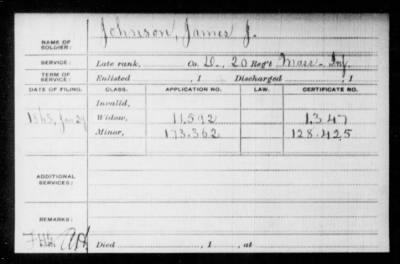 NAME OF SOLDIER: Johnson, James J.
SERVICE: Late rank, Co. D., 20 Reg't Mass. Inf.
TERM OF SERVICE: Enlisted , 1 Discharged , 1
DATE OF FILING. CLASS. APPLICATION NO. LAW. CERTIFICATE NO.
Invalid,
1863, Jan 29 Widow, 11,592 1,347
Minor, 173.362 128.425
ADDITIONAL SERVICES:
REMARKS:
Died , 1 , at